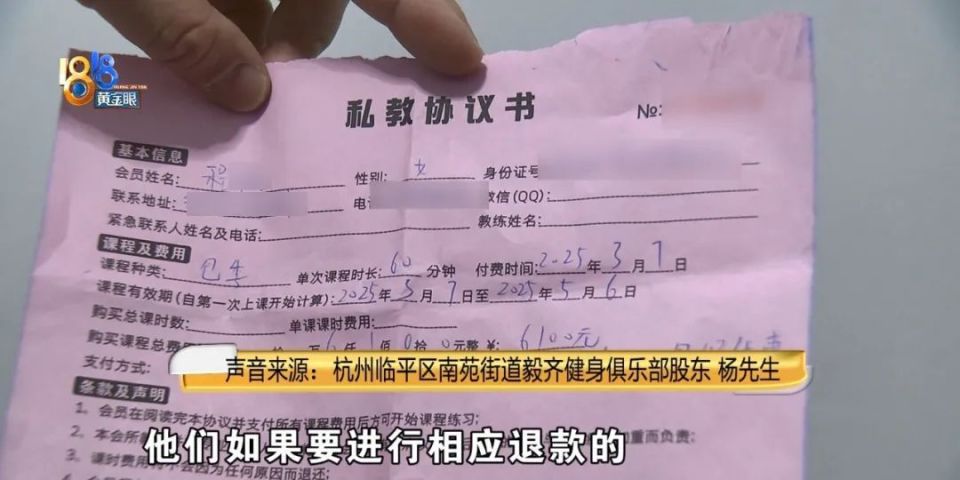 1818
黄金眼
私教协议书
№:
基本信息
会员姓名: 性别: 女 身份证号
联系地址: 电 微信(QQ):
紧急联系人姓名及电话: 教练姓名:
课程及费用
课程种类: 包年 单次课程时长: 60 分钟 付费时间: 2025年3月7日
课程有效期(自第一次上课开始计算): 2025年3月7日至2025年5月6日
购买总课时数: 单课课时费用:
购买课程总费 万6仟1佰0拾0元整 ¥: 6100元
支付方式:
声音来源: 杭州临平区南苑街道毅齐健身俱乐部股东 杨先生
条款及声明
1、会员在阅读完本协议并支付所有课程费用后方可开始课程练习;
2、本会所 加重而负责;
3、课时费用将不会因为任何原因而退还;
他们如果要进行相应退款的